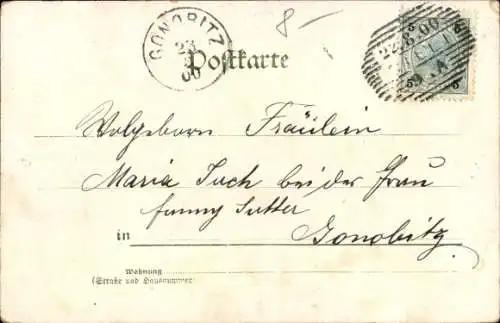 8 –
GONOBITZ
23
8
00
Postkarte
5 5
5 5
22.8.00
CILLI
9.A
Wolgeborn Fräulein
Maria Tuch bei der Frau
fanny Sutter
in Gonobitz
Wohnung
(Straße und Hausnummer)